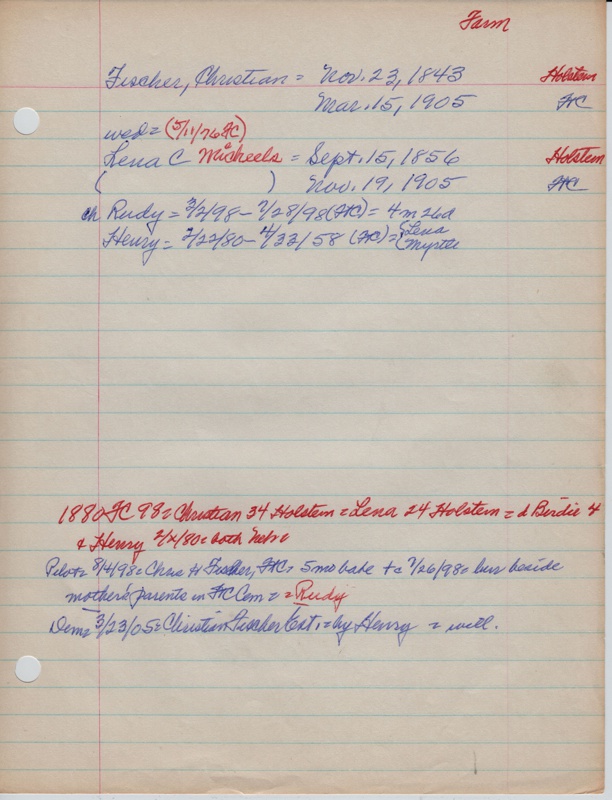 Farm
Fischer, Christian = Nov. 23, 1843 Holstein
Mar. 15, 1905 FC
wed = (5/11/76 FC)
Lena C Micheels = Sept. 15, 1856 Holstein
( ) Nov. 19, 1905 FC
ch Rudy = 3/2/98 - 7/28/98 (FC) = 4m 26d
Henry = 2/22/80 - 4/22/58 (FC) = {Lena
{Myrtle
1880 FC 98 = Christian 34 Holstein = Lena 24 Holstein = d Birdie 4
& Henry 2/2/80 = both Neb
Pilot = 8/4/98 = Chris H Fischer, FC = 5mo babe 7/26/98 = bur beside
mother's parents in FC Cem = = Rudy
Dem = 3/23/05 = Christian Fischer Est. = by Henry = will.